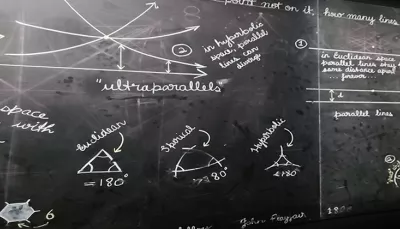 point not on it, how many lines
②
in hyperbolic
space, parallel
lines can
diverge
"ultraparallels"
①
in Euclidean space
parallel lines stay
same distance apart
forever
parallel lines
space
with
Euclidean
= 180°
Hyperbolic
<180°
6